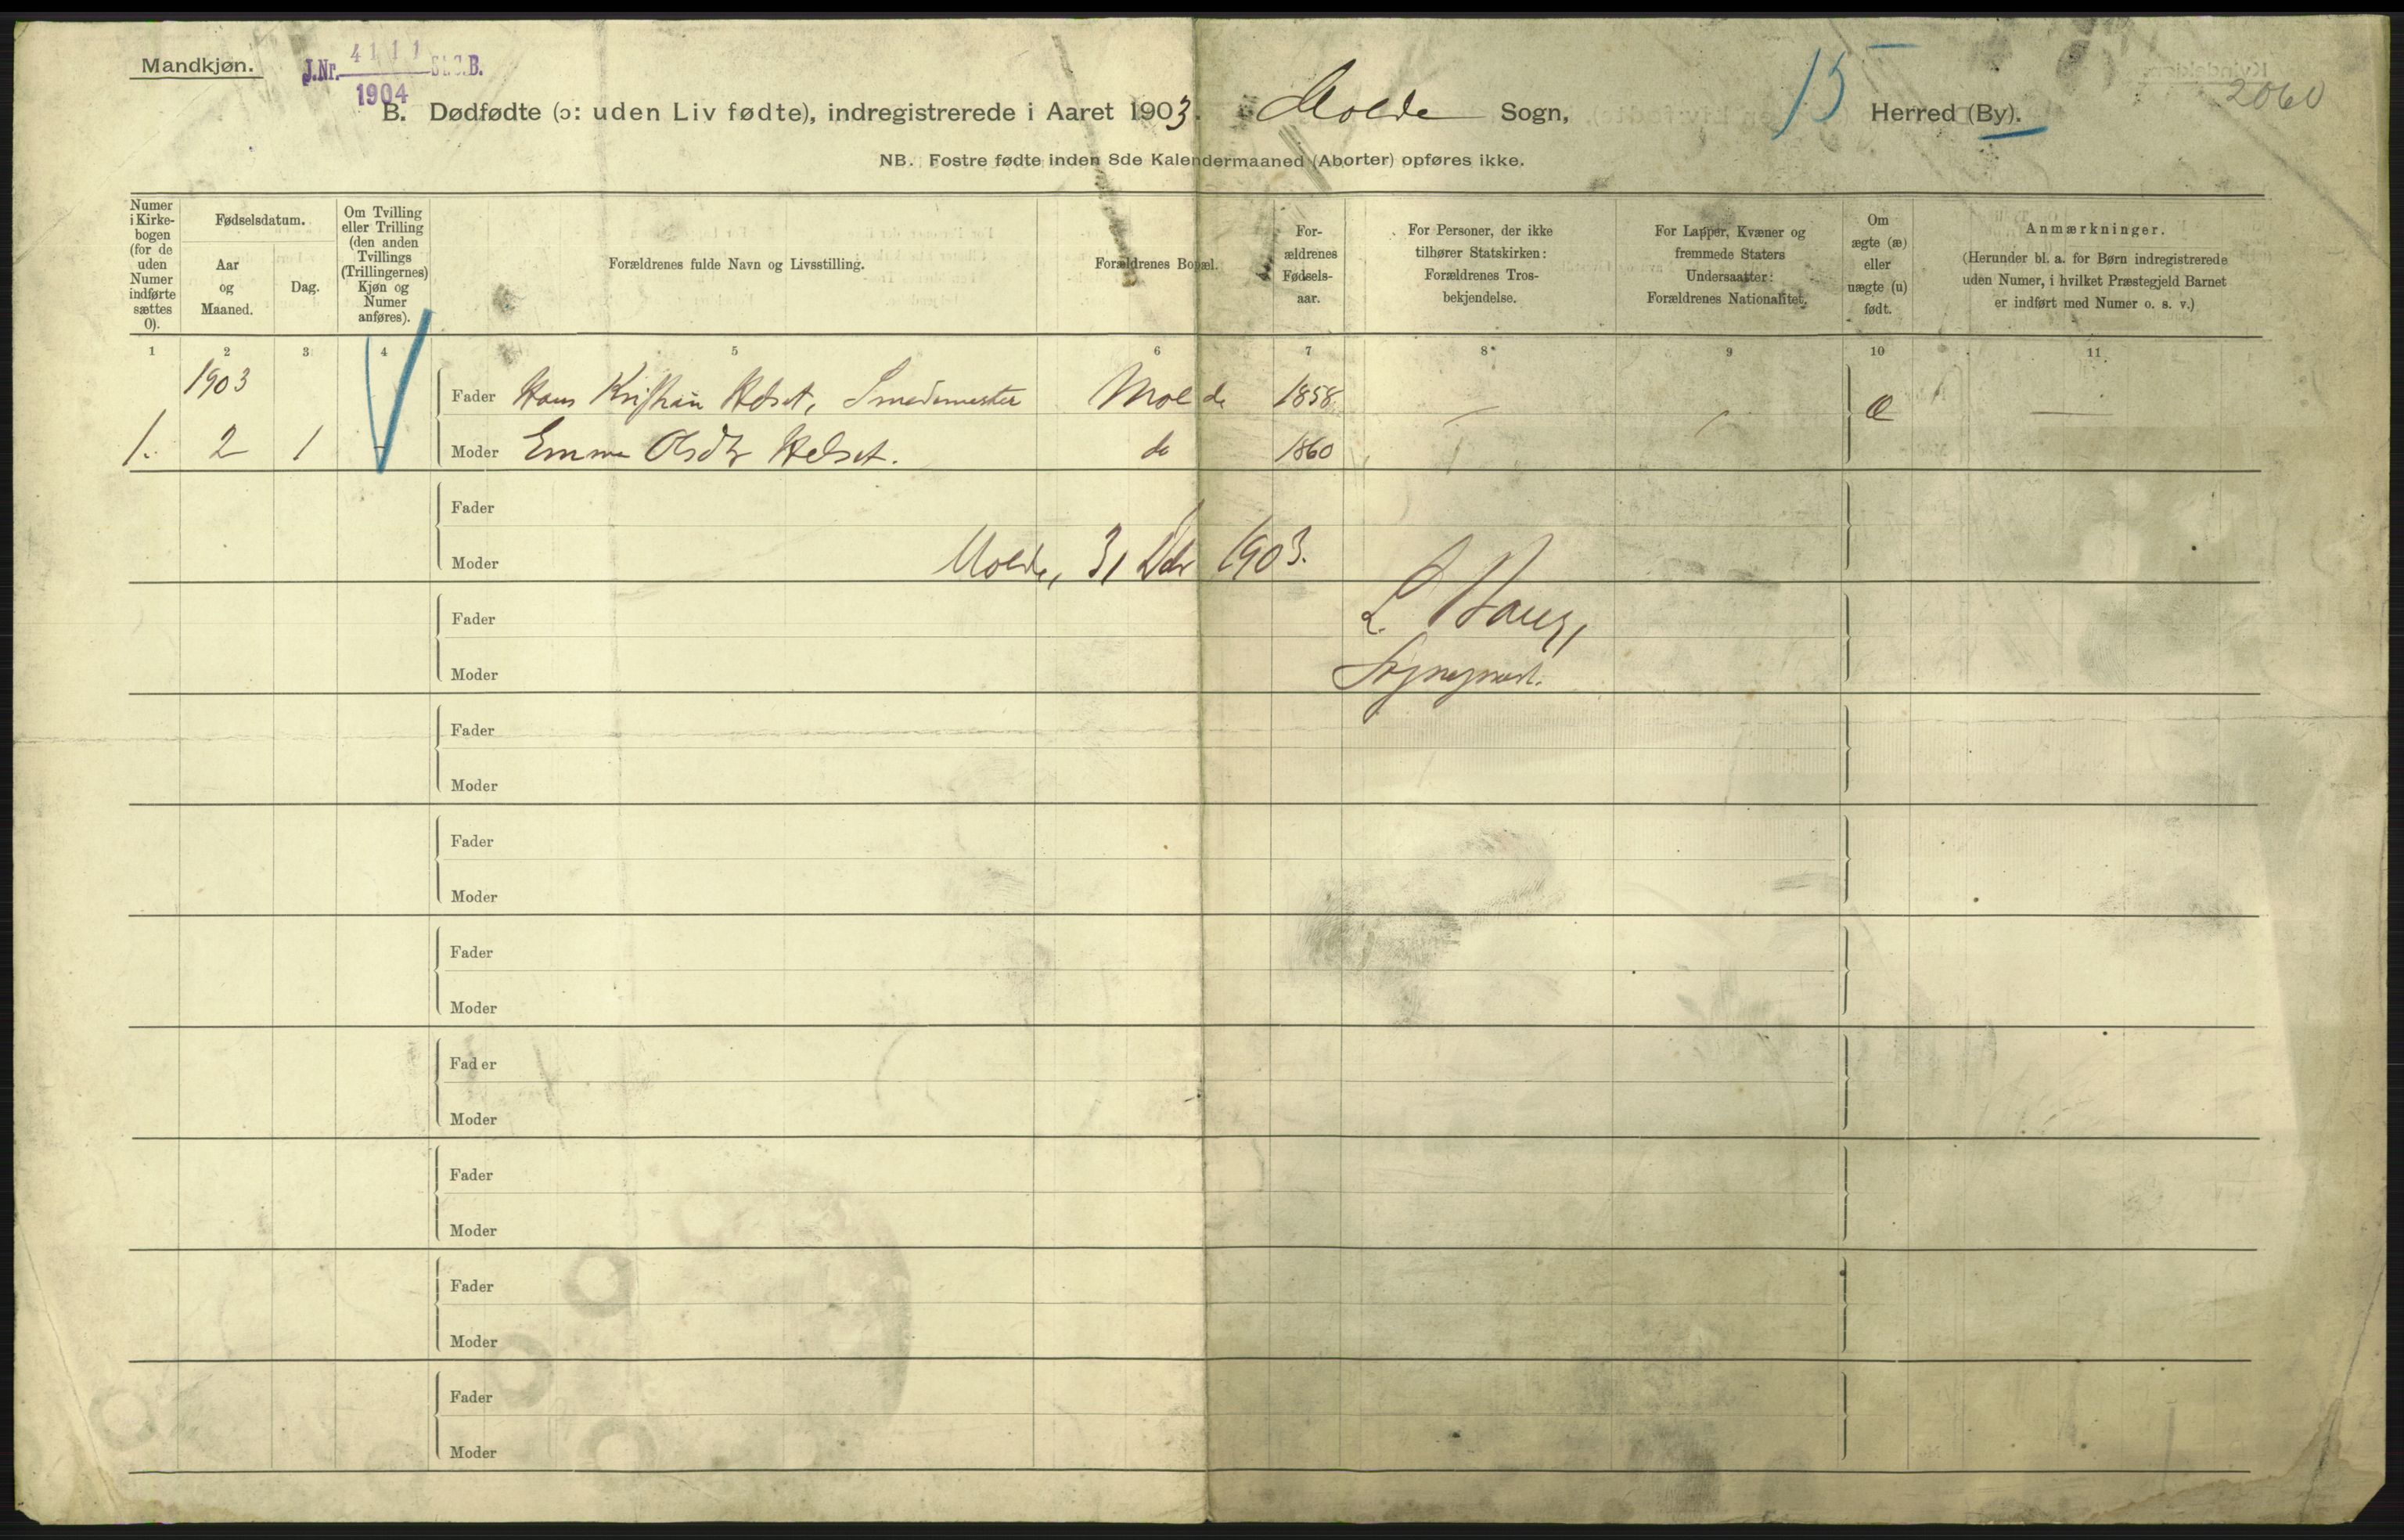 Mandkjøn.
J.Nr. 4111 St.C.B.
1904
15
2060
B. Dødfødte (ɔ: uden Liv fødte), indregistrerede i Aaret 1903. Molde Sogn, Herred (By).
NB. Fostre fødte inden 8de Kalendermaaned (Aborter) opføres ikke.
Numer i Kirke-bogen (for de uden Numer indførte sættes 0).
Fødselsdatum.
Aar og Maaned.
Dag.
Om Tvilling eller Trilling (den anden Tvillings (Trillingernes) Kjøn og Numer anføres).
Forældrenes fulde Navn og Livsstilling.
Forældrenes Bopæl.
For-ældrenes Fødsels-aar.
For Personer, der ikke tilhører Statskirken: Forældrenes Tros-bekjendelse.
For Lapper, Kvæner og fremmede Staters Undersaatter: Forældrenes Nationalitet.
Om ægte (æ) eller uægte (u) født.
Anmærkninger.
(Herunder bl. a. for Børn indregistrerede uden Numer, i hvilket Præstegjeld Barnet er indført med Numer o. s. v.)
1 2 3 4 5 6 7 8 9 10 11
1903
Fader Hans Kristian Helset, Smedmester Molde 1858 — — æ —
1. 2 1 Moder Emma Olsdtr Helset. do 1860
Fader
Moder
Molde, 31 Dcbr 1903.
Fader
L. Haug,
Moder
Sogneprest.
Fader
Moder
Fader
Moder
Fader
Moder
Fader
Moder
Fader
Moder
Fader
Moder
Fader
Moder